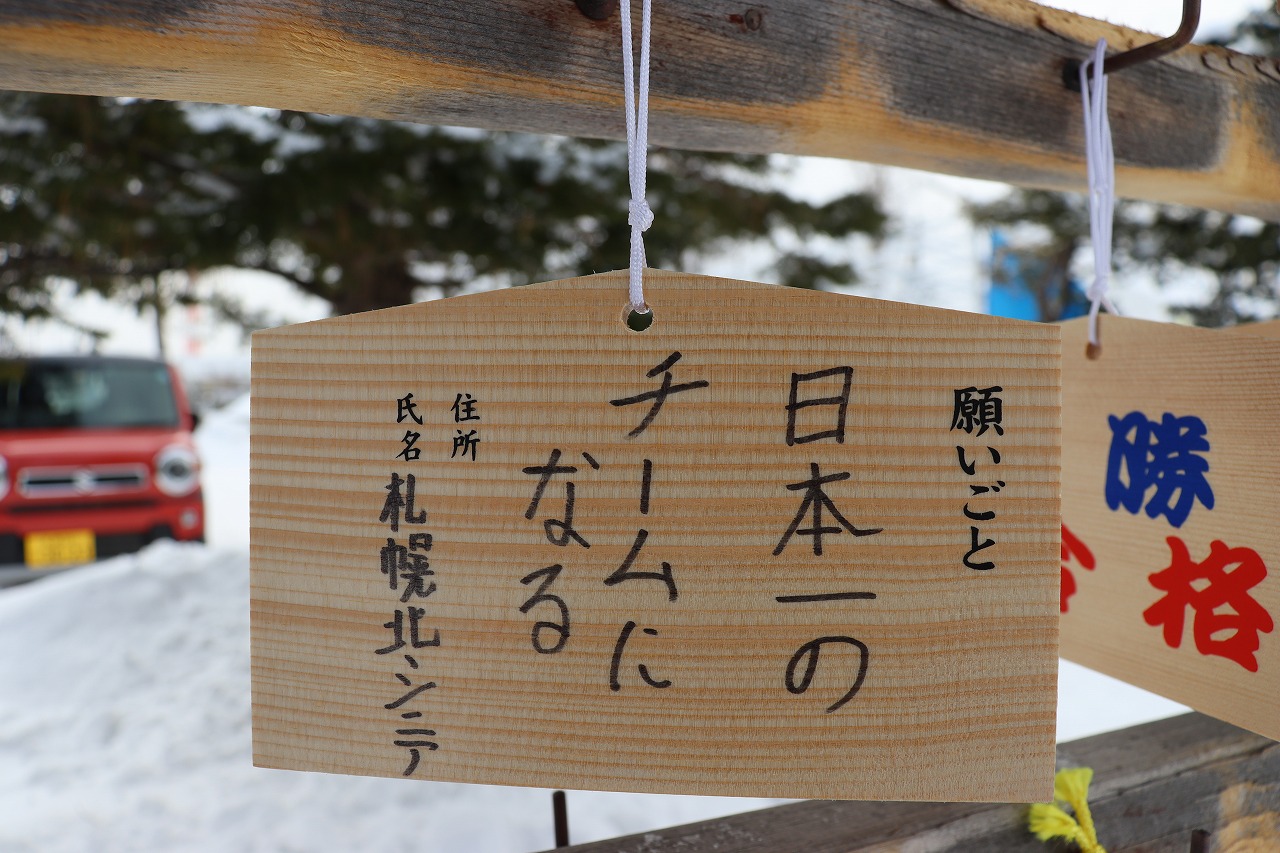 願いごと
日本一の
チームに
なる
住所
氏名 札幌北シニア
勝
格